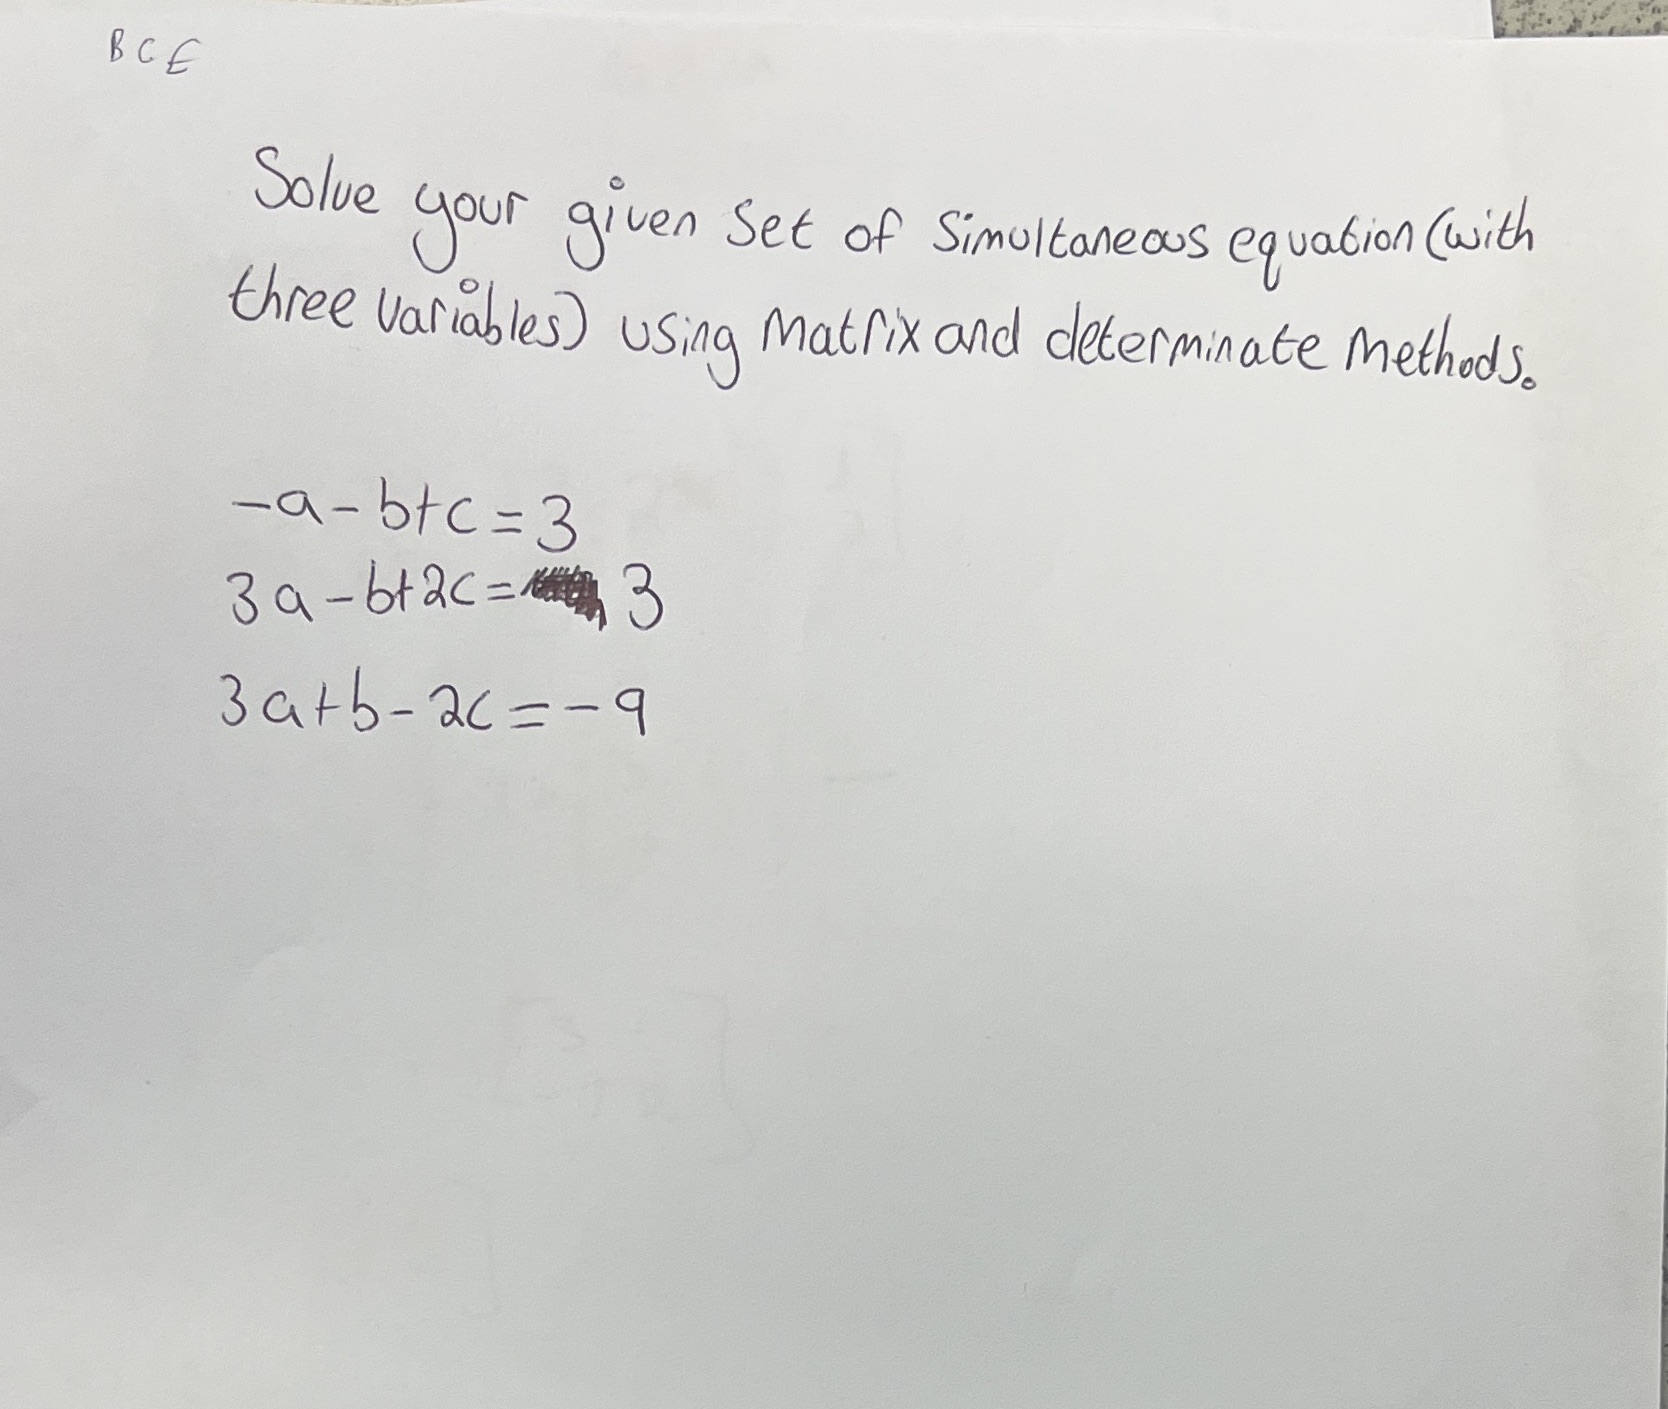 BCE
Solve your given set of Simultaneous equation (with
three variables) using Matrix and determinate Methods.
-a-b+c=3
3a-b+2c= 3
3a+b-2c=-9